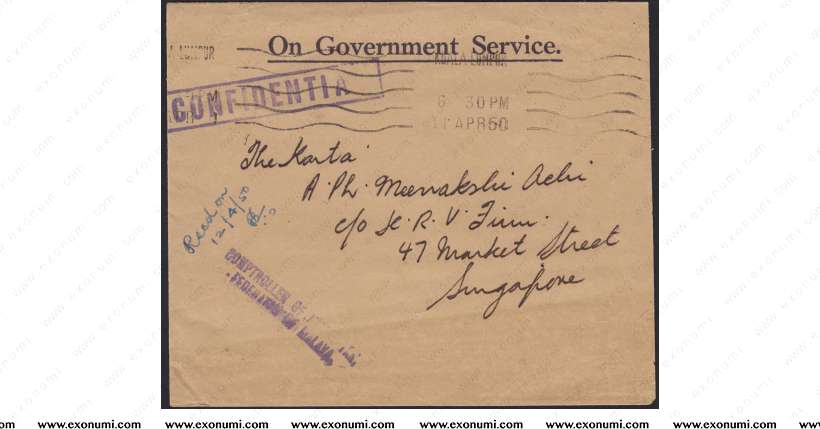 On Government Service.
KUALA LUMPUR
6 30 PM
11 APR 50
CONFIDENTIA
The Karta
A. Ph. Meenakshi Achi
c/o
R. V. Firm.
47 Market Street
Singapore
Recd on
12/4/50
COMPTROLLER OF
FEDERATION OF MALAYA.
www.exonumi.com www.exonumi.com www.exonumi.com www.exonumi.com www.exonumi.com www.exonumi.com